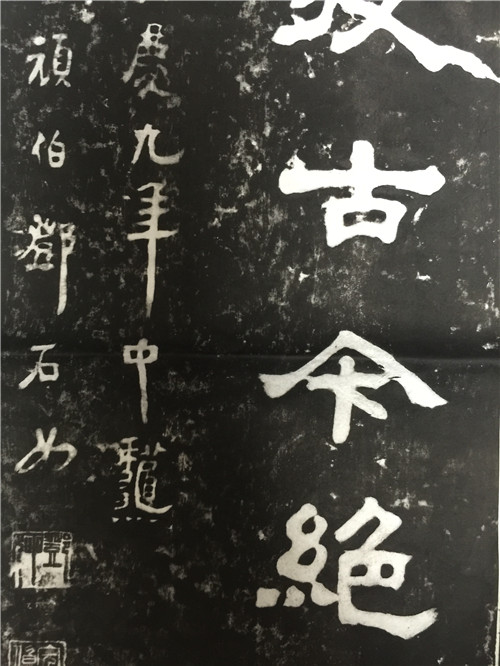 古今絕
慶九年中龝
頑伯鄧石如